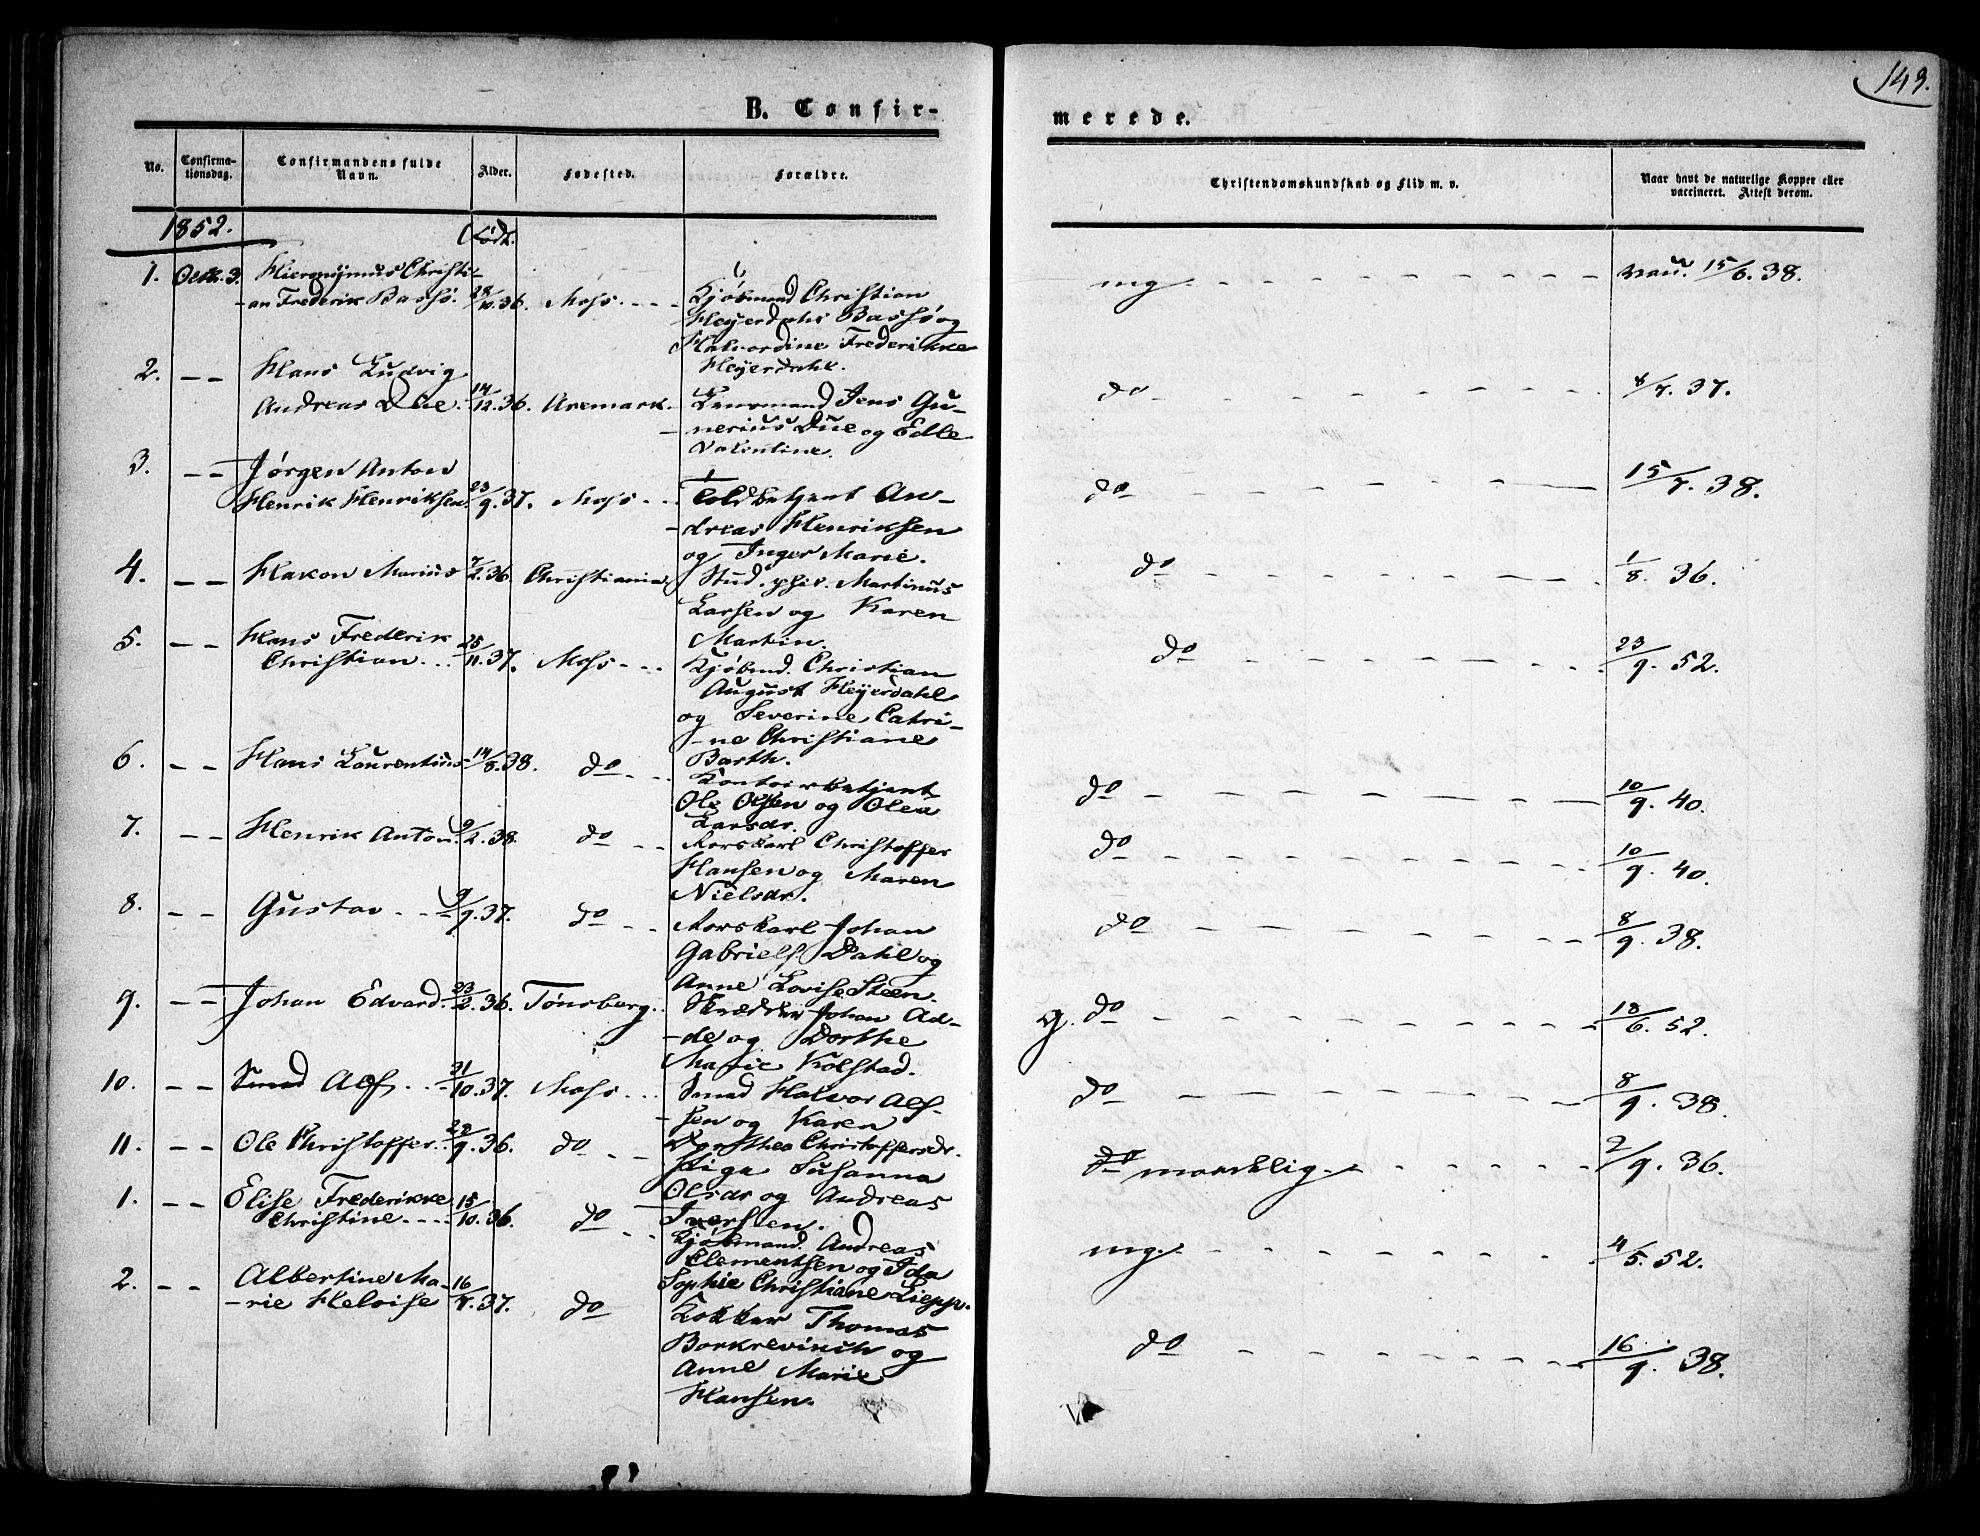 149.
B. Confir-
merede.
No.
Confirma-
tionsdag.
Confirmandens fulde
Navn.
Alder.
Fødested.
Forældre.
Christendomskundskab og Flid m. v.
Naar havt de naturlige Kopper eller
vaccineret. Attest derom.
1852.
Født.
1. Octr. 3. Hieronymus Christi-
an Frederik Bassø. 28/10. 36. Moss Kjøbmand Christian
Heyerdahl Bassø og
Halvordine Frederikke
Heyerdahl.
mg vac. 15/6. 38.
2. — — Hans Ludvig
Andreas Due. 14/12. 36. Aremark. Lensmand Jens Gu-
nerius Due og Edle
Valentine.
do 8/7. 37.
3. — — Jørgen Anton
Henrik Henriksen. 23/9. 37. Moss Toldbetjent An-
dreas Henriksen
og Inger Marie.
do 15/7. 38.
4. — — Hakon Marius 7/2. 36. Christiania Stud. phil. Martinus
Larsen og Karen
Martin.
do 1/8. 36.
5. — — Hans Frederik
Christian 25/11. 37. Moss Kjøbmd. Christian
August Heyerdahl
og Severine Cathri-
ne Christiane
Barth.
do 23/9. 52.
6. — — Hans Laurentius 14/8. 38. do Kontoirbetjent
Ole Olsen og Olea
Larsdr.
do 10/9. 40.
7. — — Henrik Anton 9/2. 38. do Rorskarl Christoffer
Hansen og Maren
Nielsdr.
do 10/9. 40.
8. — — Gustav 9/9. 37. do Rorskarl Johan
Gabriels. Dahl og
Anne Lovise Steen.
do 8/9. 38.
9. — — Johan Edvard 23/2. 36. Tønsberg Skrædder Johan Ad-
de og Dorthe
Marie Kolstad.
g. do 18/6. 52.
10. — — Smed Alf 31/10. 37. Moss Smed Halvor Alf-
sen og Karen
Dorthea Christoffersdr.
do 8/9. 38.
11. — — Ole Christoffer 28/9. 36. do Pige Susanna
Olsdr og Andreas
Iversen.
do maadelig 2/9. 36.
1. — — Elise Frederikke
Christine 15/10. 36. do Kjøbmand. Andreas
Clementsen og Ida
Sophie Christiane Liepp.
mg. 4/5. 52.
2. — — Albertine Ma-
rie Helvise 16/7. 37. do Kokker Thomas
Borkrevinck og
Anne Marie
Hansen.
do 16/9. 38.